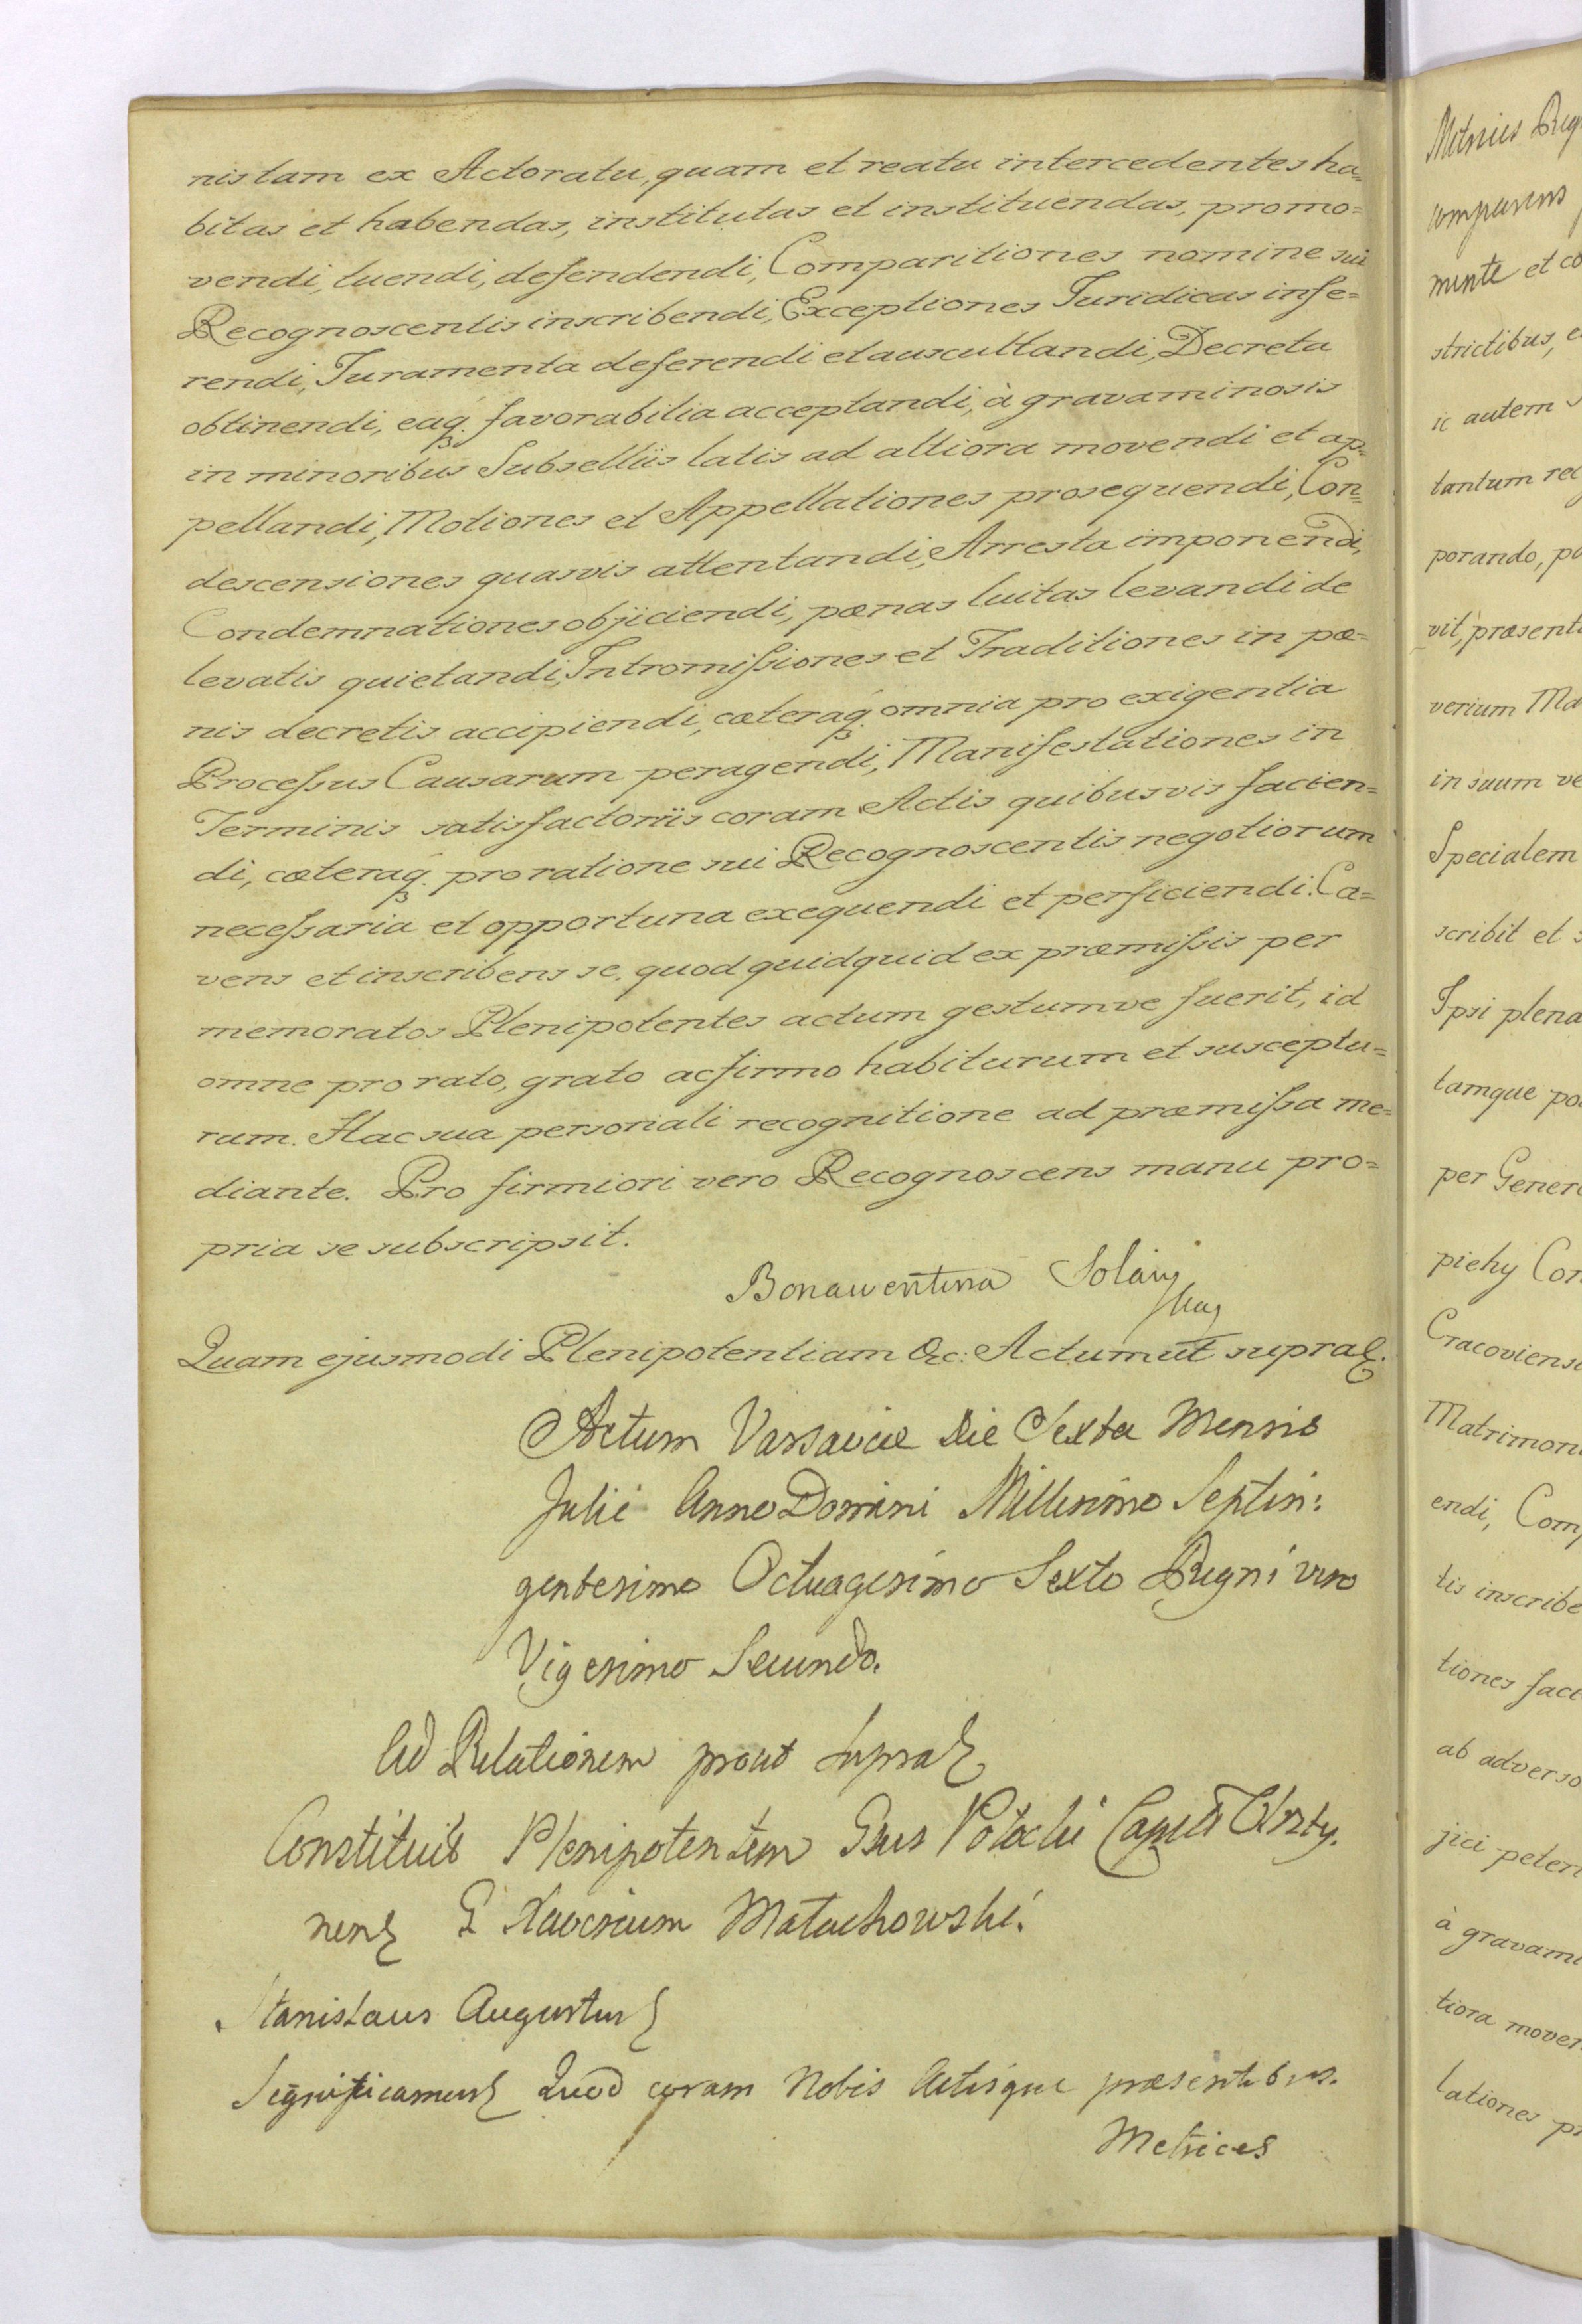 nis tam ex Actoratu, quam et reatu intercedentes ha=
bitas et habendas, institutas et instituendas, promo=
vendi, tuendi, defendendi, Comparitiones nomine sui
Recognoscentis inscribendi, Exceptiones Juridicas infe=
rendi, Juramenta deferendi et auscultandi, Decreta
obtinendi, eaq. favorabilia acceptandi, à gravaminosis
in minoribus Subselliis latis ad altiora movendi et ap=
pellandi, Motiones et Appellationes prosequendi, Con=
descensiones quasvis attentandi, Arresta imponendi,
Condemnationes objiciendi, pœnas luitas levandi de
levatis quietandi, Intromissiones et Traditiones in pœ=
nis decretis accipiendi, cæteraq. omnia pro exigentia
Processus Causarum peragendi, Manifestationes in
Terminis satisfactoriis coram Actis quibusvis facien=
di, cæteraq. pro ratione sui Recognoscentis negotiorum
necessaria et opportuna exequendi et perficiendi. Ca=
vens et inscribens se, quod quidquid ex præmissis per
memoratos Plenipotentes actum gestumve fuerit, id
omne pro rato, grato ac firmo habiturum et susceptu=
rum. Hac sua personali recognitione ad præmissa me=
diante. Pro firmiori vero Recognoscens manu pro=
pria se subscripsit.
Bonawentura
Quam ejusmodi Plenipotentiam &c: Actum ut supra
Actum Varsaviæ Die Sexta Mensis
Julii Anno Domini Millesimo Septin:
gentesimo Octuagesimo Sexto Regni vero
Vigesimo Secundo.
Ad Relationem prout supra
Constituit Plenipotentem Gsus Potocki
G Xaverium Małachowski.
Stanislaus Augustus
Significamus Quod coram Nobis Actisque præsentibus.
Metrices
Metrices Reg
comparens
mente et co
strictibus, e
ic autem
tantum rec
porando, po
vit, præsenti
verium Ma
in suum ve
Specialem
scribit et s
Ipsi plena
tamque po
per Genero
piehy Con
Cracoviens
Matrimon
endi, Comp
tis inscribe
tiones faci
ab adverso
jici peten
à gravami
tiora mover
lationes pr